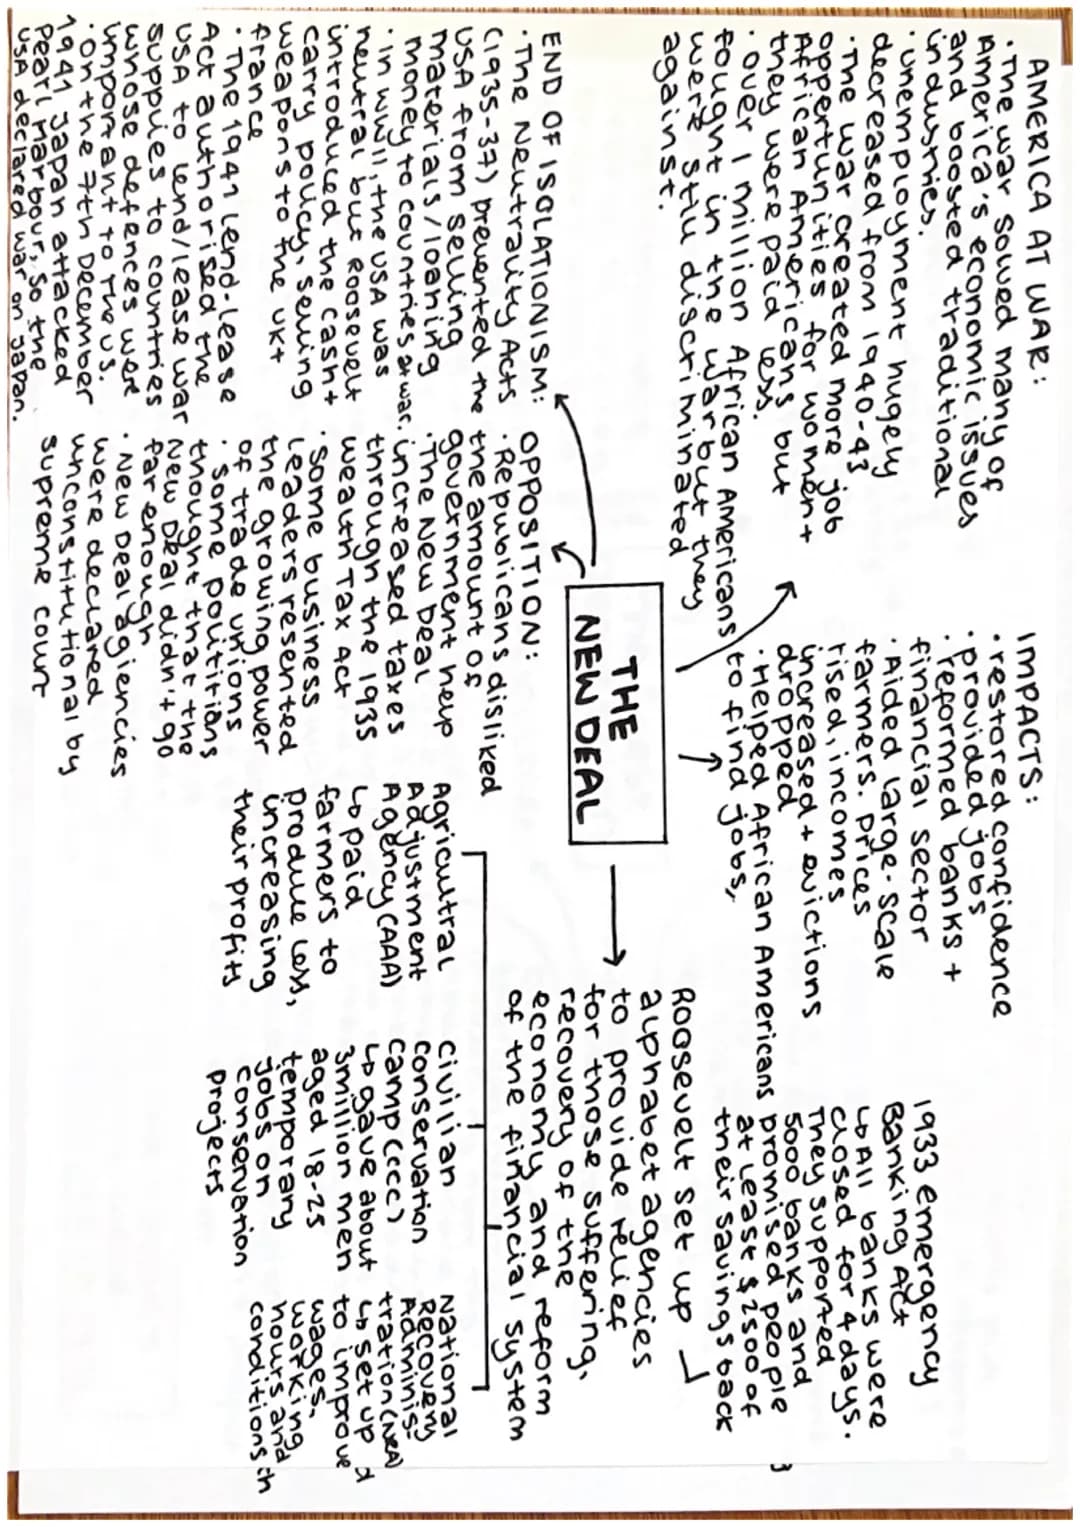 AMERICA AT WAR:
· The war solved many of
America's economic issues
and boosted traditional
industries.
· unemployment hugely
decreased from 1940-43
· The war created more job
oppertunities for women +
African Americans but
they were paid less.
· over 1 million African Americans
fought in the war but they
were still discriminated
against.
IMPACTS:
· restored confidence
· provided jobs
· reformed banks +
financial sector
· Aided large-scale
farmers. prices
rised, incomes
increased + evictions
dropped
· Helped African Americans
to find jobs,
1933 Emergency
Banking Act
↳ All banks were
closed for 4 days.
They supported
5000 banks and
promised people
at least $2500 of
their savings back
3
THE
NEW DEAL
Roosevelt set up
alphabet agencies
to provide relief
for those suffering,
recovery of the
economy and reform
of the financial system
END OF ISOLATIONISM:
· The Neutrality Acts
(1935-37) prevented the
USA from selling
materials/loaning
money to countries at war.
· In WW1, the USA was
neutral but Roosevelt
introduced the cash +
carry policy, selling
weapons to the UK +
France
· The 1941 Lend-Lease
Act authorised the
USA to lend/lease war
supplies to countries
whose defences were
important to the US.
· On the 7th December
1941 Japan attacked
Pearl Harbour, so the
USA declared war on Japan.
OPPOSITION:
· Republicans disliked
the amount of
government help
· The New Deal
increased taxes
through the 1935
wealth Tax Act
· Some business
leaders resented
the growing power
of trade unions
· Some polititians
thought that the
New Deal didn't go
far enough
· New Deal agiencies
were declared
unconstitutional by
supreme court
Agricultral
Adjustment
Agency (AAA)
↳ paid
farmers to
produce less,
increasing
their profits
Civilian
conservation
camp (CCC)
↳ gave about
3million men
aged 18-25
temporary
jobs on
conservation
projects
National
Recovery
Adminis-
tration (NRA)
↳ set up
to improve
wages,
working
hours and
conditions in